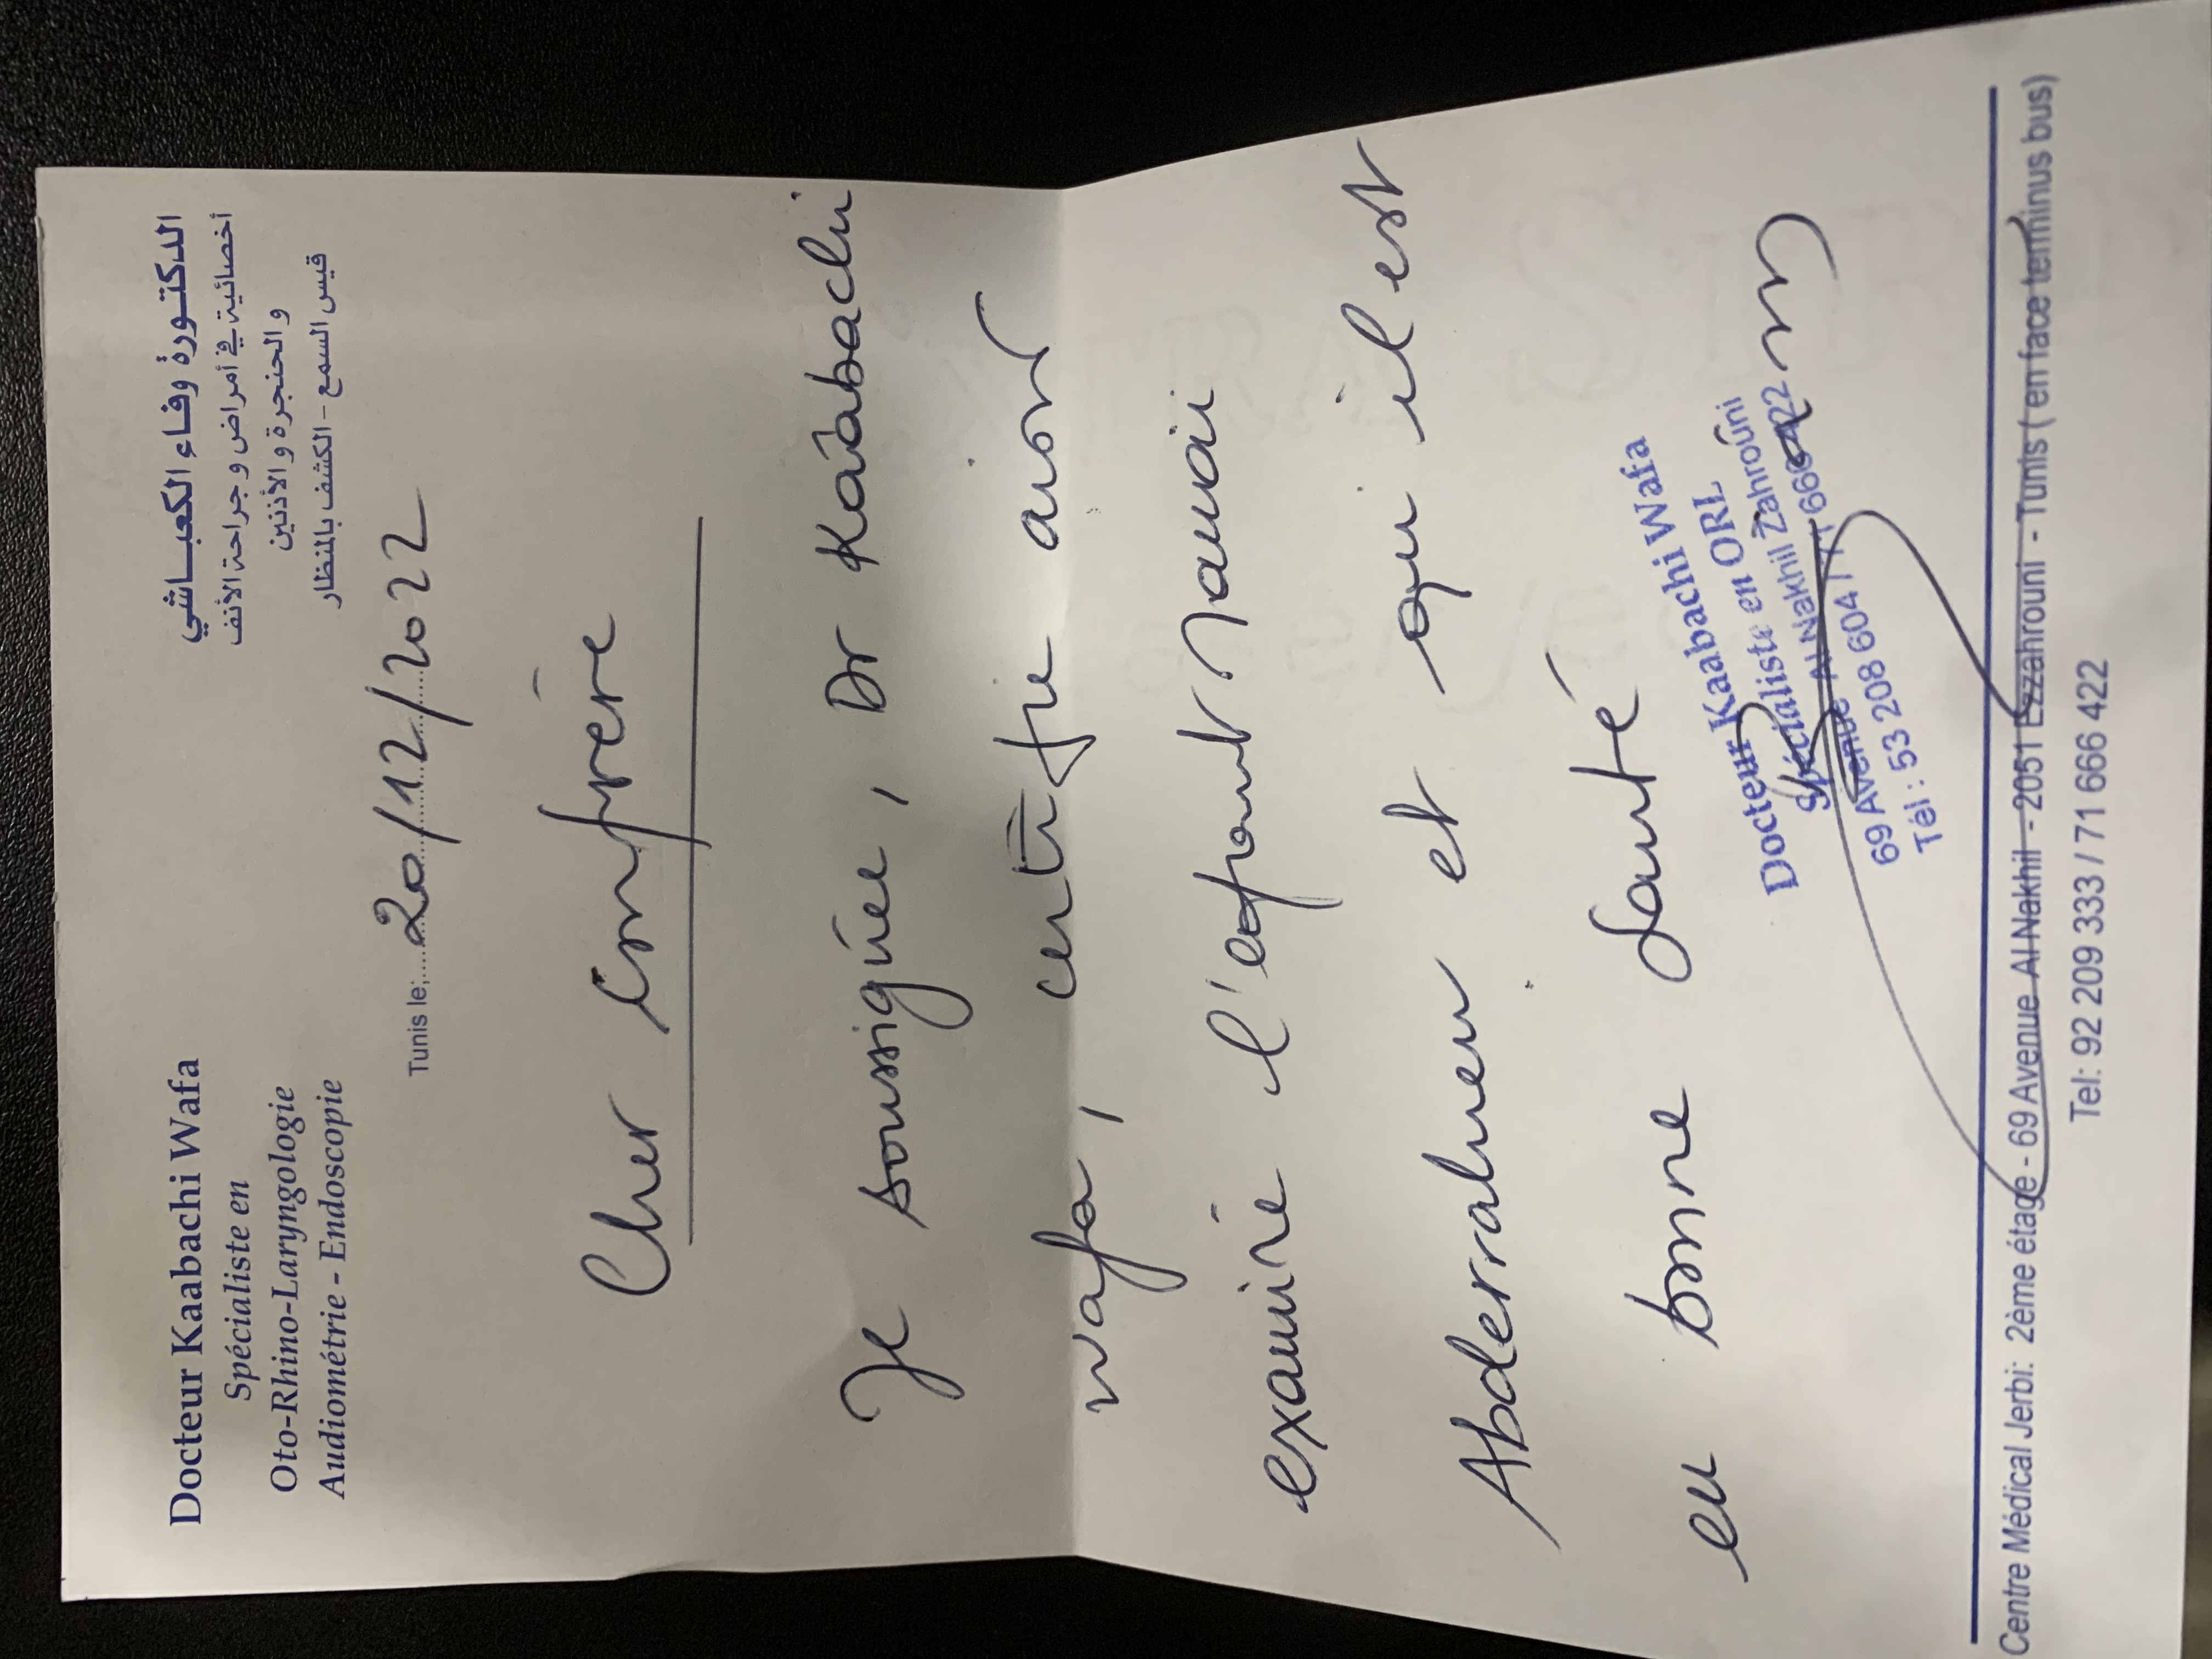 Docteur Kaabachi Wafa
Spécialiste en
Oto-Rhino-Laryngologie
Audiométrie - Endoscopie
الدكتورة وفاء الكعباشي
أخصائية في أمراض و جراحة الأنف
و الحنجرة و الأذنين
قيس السمع - الكشف بالمنظار
Tunis le: 20/12/2022
Cher confrère
Je soussignée, Dr Kaabachi
wafa, certifie avoir
examiné l'enfant
Abderrahmen et qui il est
en bonne santé
Docteur Kaabachi Wafa
Spécialiste en ORL
69 Avenue Al Nakhil Zahrouni
Tél : 53 208 604 / 71 666 422
Centre Médical Jerbi: 2ème étage - 69 Avenue Al Nakhil - 2051 Ezzahrouni - Tunis ( en face terminus bus)
Tel: 92 209 333 / 71 666 422